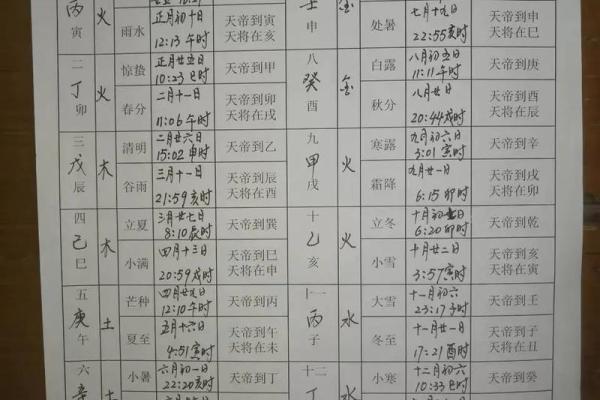 丙
寅
火
雨水
正月初十日
12:13 午时
天帝到寅
天将在亥
二
丁
卯
火
惊蛰
正月廿五日
10:23 巳时
天帝到甲
春分
二月十一日
11:06 午时
天帝到卯
天将在戌
三
戊
辰
木
清明
二月廿六日
15:02 申时
天帝到乙
谷雨
三月十一日
21:59 亥时
天帝到辰
天将在酉
四
己
巳
木
立夏
三月廿七日
8:10 辰时
天帝到巽
小满
四月十三日
20:59 戌时
天帝到巳
天将在申
五
庚
午
土
芒种
四月廿九日
12:10 午时
天帝到丙
夏至
五月十六日
4:51 寅时
天帝到午
天将在未
六
辛
土
小暑
六月初一日
22:20 亥时
天帝到丁
壬
申
金
处暑
七月十九日
22:55 亥时
天帝到申
天将在巳
八
癸
酉
金
白露
八月初五日
11:11 午时
天帝到庚
秋分
八月廿日
20:44 戌时
天帝到酉
天将在辰
九
甲
戌
火
寒露
九月初六日
3:01 寅时
天帝到辛
霜降
九月廿一日
6:15 卯时
天帝到戌
天将在卯
十
乙
亥
火
立冬
十月初日
6:20 卯时
天帝到乾
小雪
十月廿二日
3:57 寅时
天帝到亥
天将在寅
十一
丙
子
水
大雪
十一月初六
23:17 子时
天帝到壬
冬至
十一月廿一日
17:21 酉时
天帝到子
天将在丑
十二
丁
水
小寒
十二月初六
10:33 巳时
天帝到癸